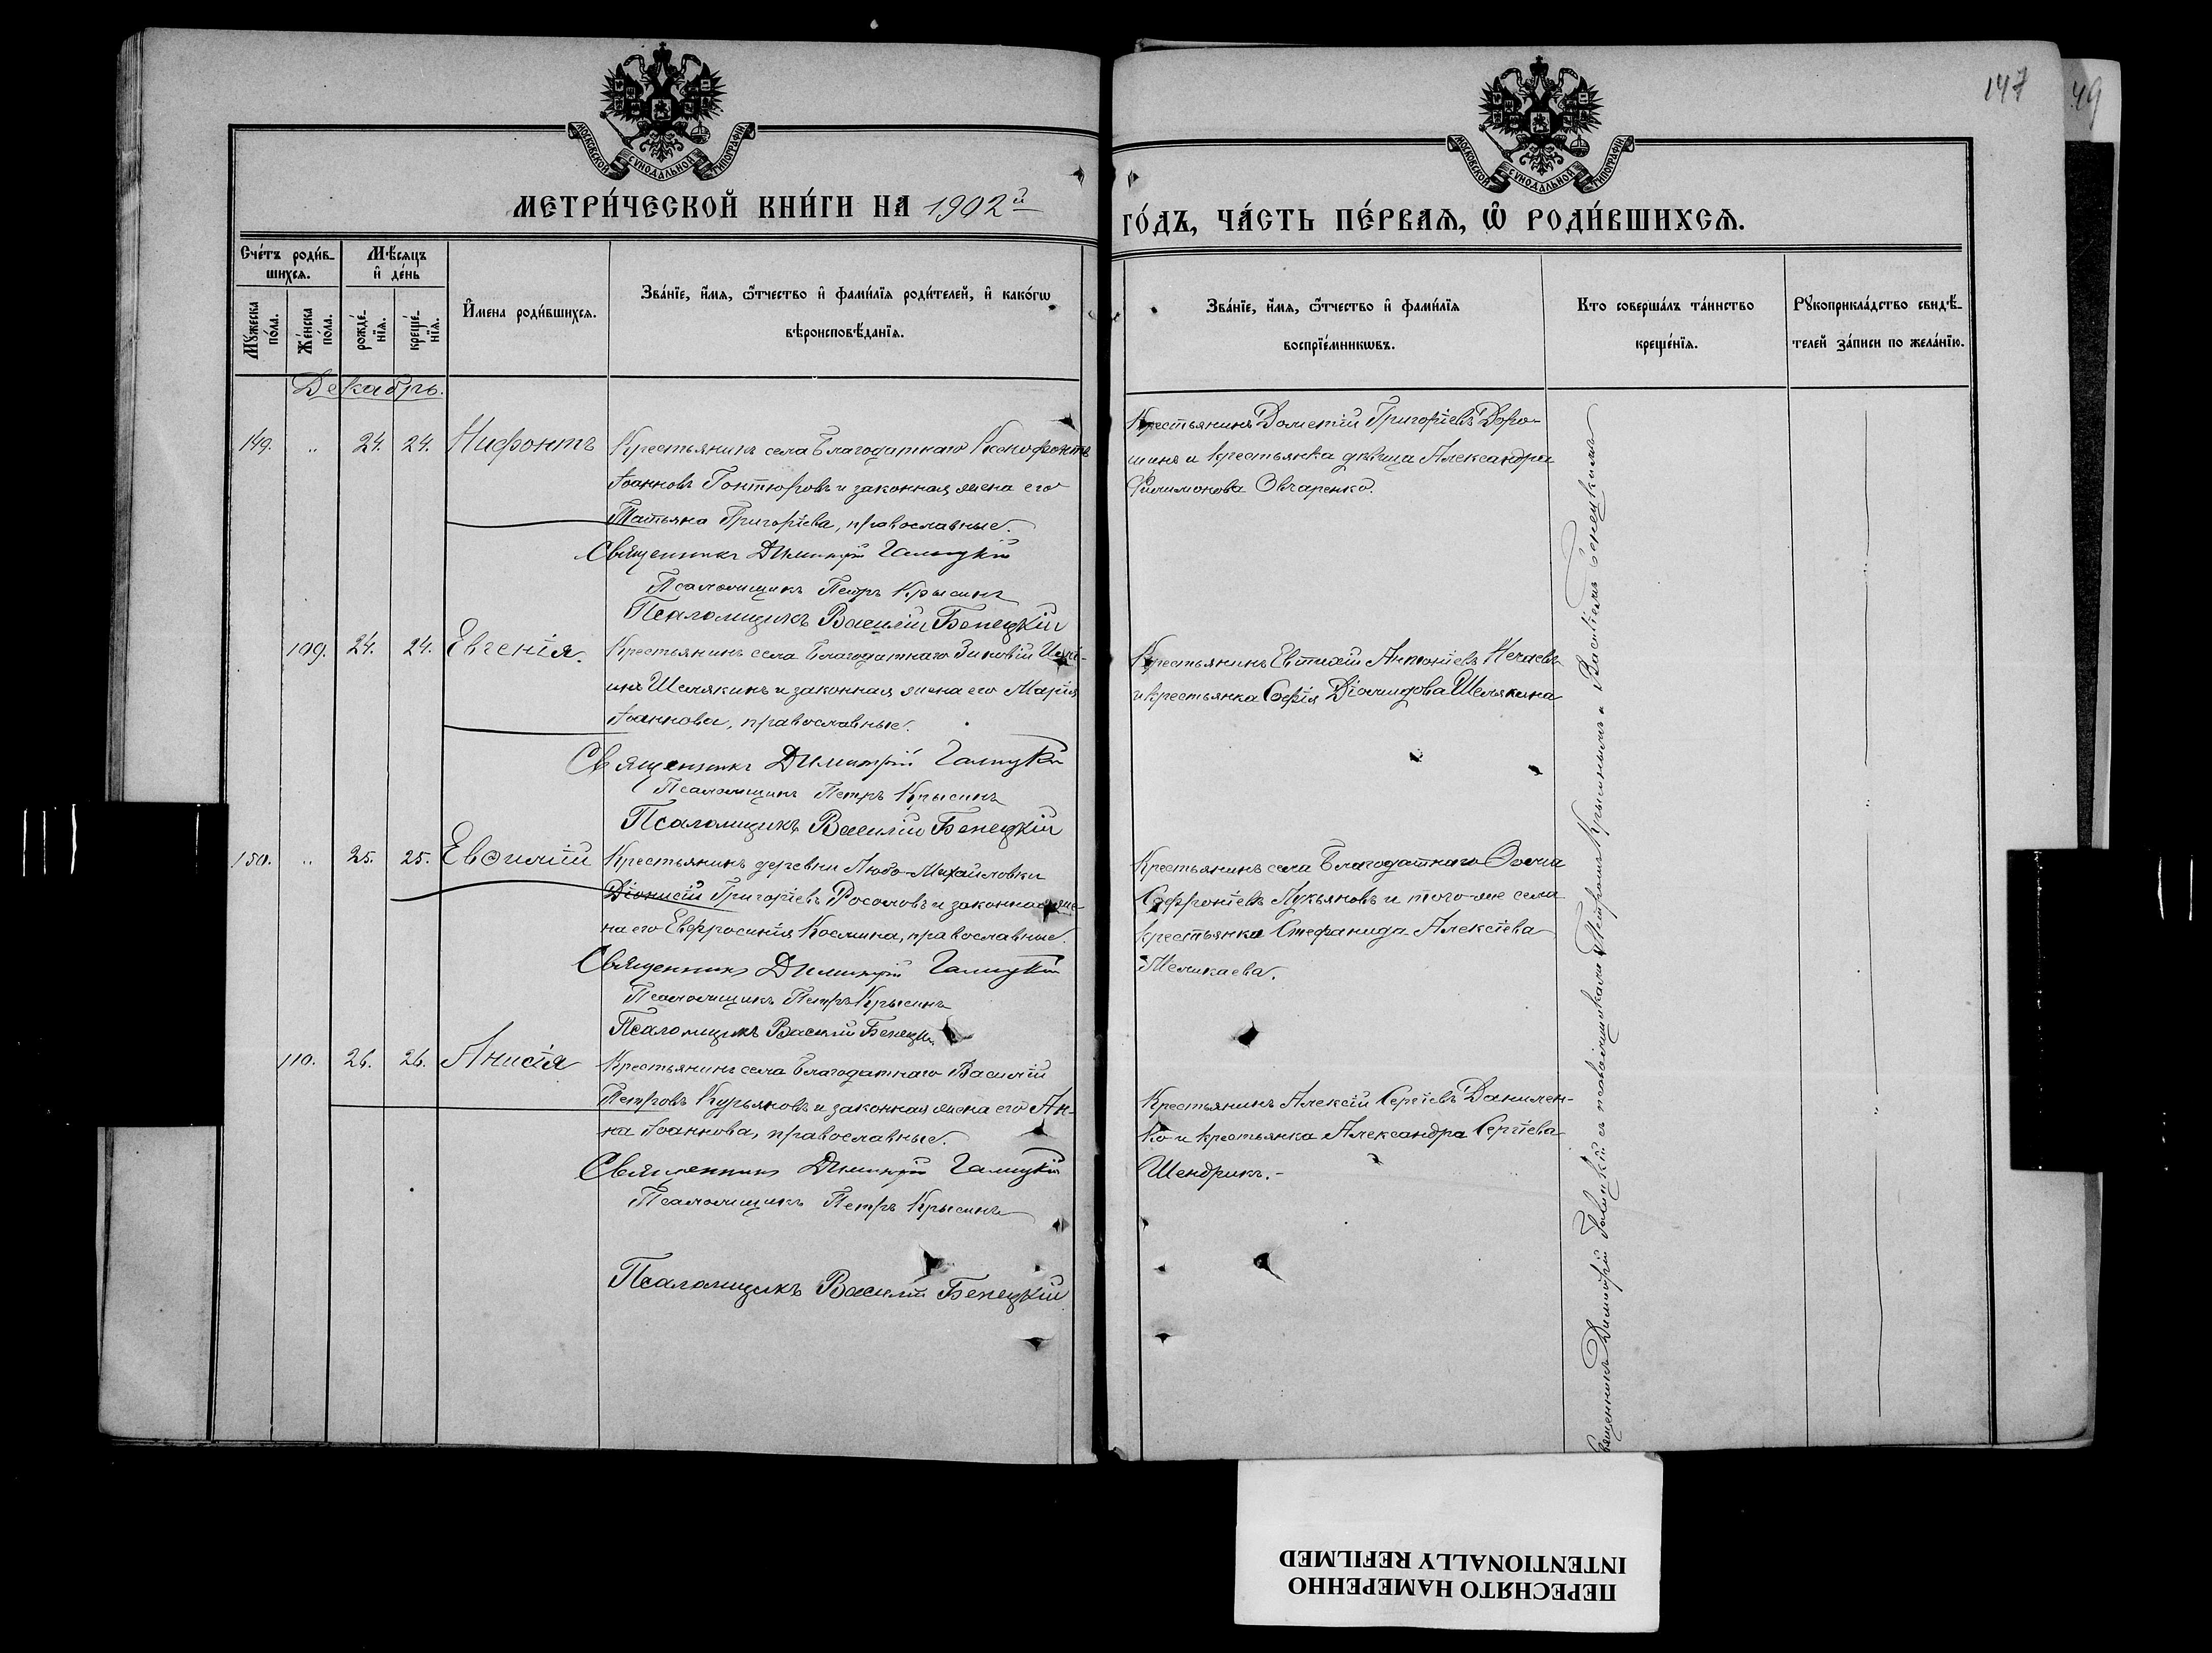 147
49
МОСКОВСКОЙ СѴНОДАЛЬНОЙ ТИПОГРАФІИ
МОСКОВСКОЙ СѴНОДАЛЬНОЙ ТИПОГРАФІИ
МЕТРИ́ЧЕСКОЙ КНИ́ГИ НА 1902й
ГО́ДЪ, ЧА́СТЬ ПЕ́РВАѦ, Ѽ РОДИ́ВШИХСѦ.
Сче́тъ роди́в-
шихсѧ.
Мѣ́сѧцъ
и҆ де́нь
Мꙋ́жеска
по́ла.
Же́нска
по́ла.
рожде́-
нїѧ.
креще́-
нїѧ.
И҆мена роди́вшихсѧ.
Зва́нїе, и҆́мѧ, ѻ҆́тчество и҆ фами́лїѧ роди́телей, и҆ како́гѡ
вѣроисповѣ́данїѧ.
Зва́нїе, и҆́мѧ, ѻ҆́тчество и҆ фами́лїѧ
воспрїе́мникѡвъ.
Кто соверша́лъ та́инство
креще́нїѧ.
Рꙋкоприкла́дство свидѣ́-
телей за́писи по жела́нїю.
Декабрь.
149. " 24. 24. Нифонтъ
Крестьянинъ села Благодатнаго Ксенофонтъ
Іоанновъ Гонтюровъ и законная жена его
Татьяна Григоріева, православные.
Священникъ Димитрій Галицкій
Псаломщикъ Петръ Крысинъ
Псаломщикъ Василій Бенецкій
Крестьянинъ Дометій Григоріевъ Доро-
шинъ и крестьянка дѣвица Александра
Филимонова Овчаренко.
109. 24. 24. Евгенія.
Крестьянинъ села Благодатнаго Зиновій
инъ Шемякинъ и законная жена его Марія
Іоаннова, православные.
Священникъ Димитрій Галицкій
Псаломщикъ Петръ Крысинъ
Псаломщикъ Василій Бенецкій
Крестьянинъ Евтихій Антоніевъ Нечаевъ
и крестьянка Софія Діомидова Шемякина
150. " 25. 25. Евѳимій
Крестьянинъ деревни Любо-Михайловки
Діонисій Григоріевъ Росоловъ и законная же-
на его Евфросинія Космина, православные.
Священникъ Димитрій Галицкій
Псаломщикъ Петръ Крысинъ
Псаломщикъ Василій Бенецкій
Крестьянинъ села Благодатнаго Ѳома
Софроніевъ Лукьяновъ и того-же села
крестьянка Стефанида Алексіева
Меликаева.
110. 26. 26. Анисія
Крестьянинъ села Благодатнаго Василій
Петровъ Курьяновъ и законная жена его Ан-
на Іоаннова, православные.
Священникъ Димитрій Галицкій
Псаломщикъ Петръ Крысинъ
Псаломщикъ Василій Бенецкій
Крестьянинъ Алексій Сергіевъ Данилен-
ко и крестьянка Александра Сергіева
Шендрикъ.-
Священникъ Димитрій Галицкій съ псаломщиками Петромъ Крысинымъ и Василіемъ Бенецкимъ
ПЕРЕСНЯТО НАМЕРЕННО
INTENTIONALLY REFILMED